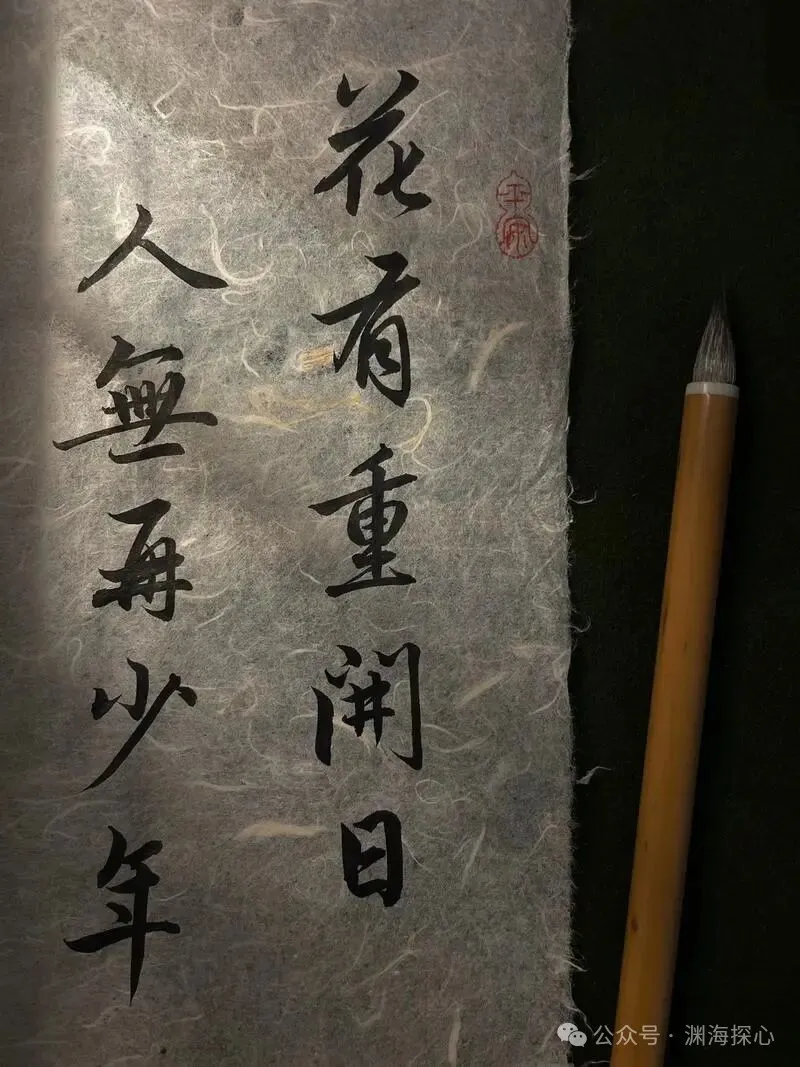 花有重開日
人無再少年
平安
公众号·渊海探心